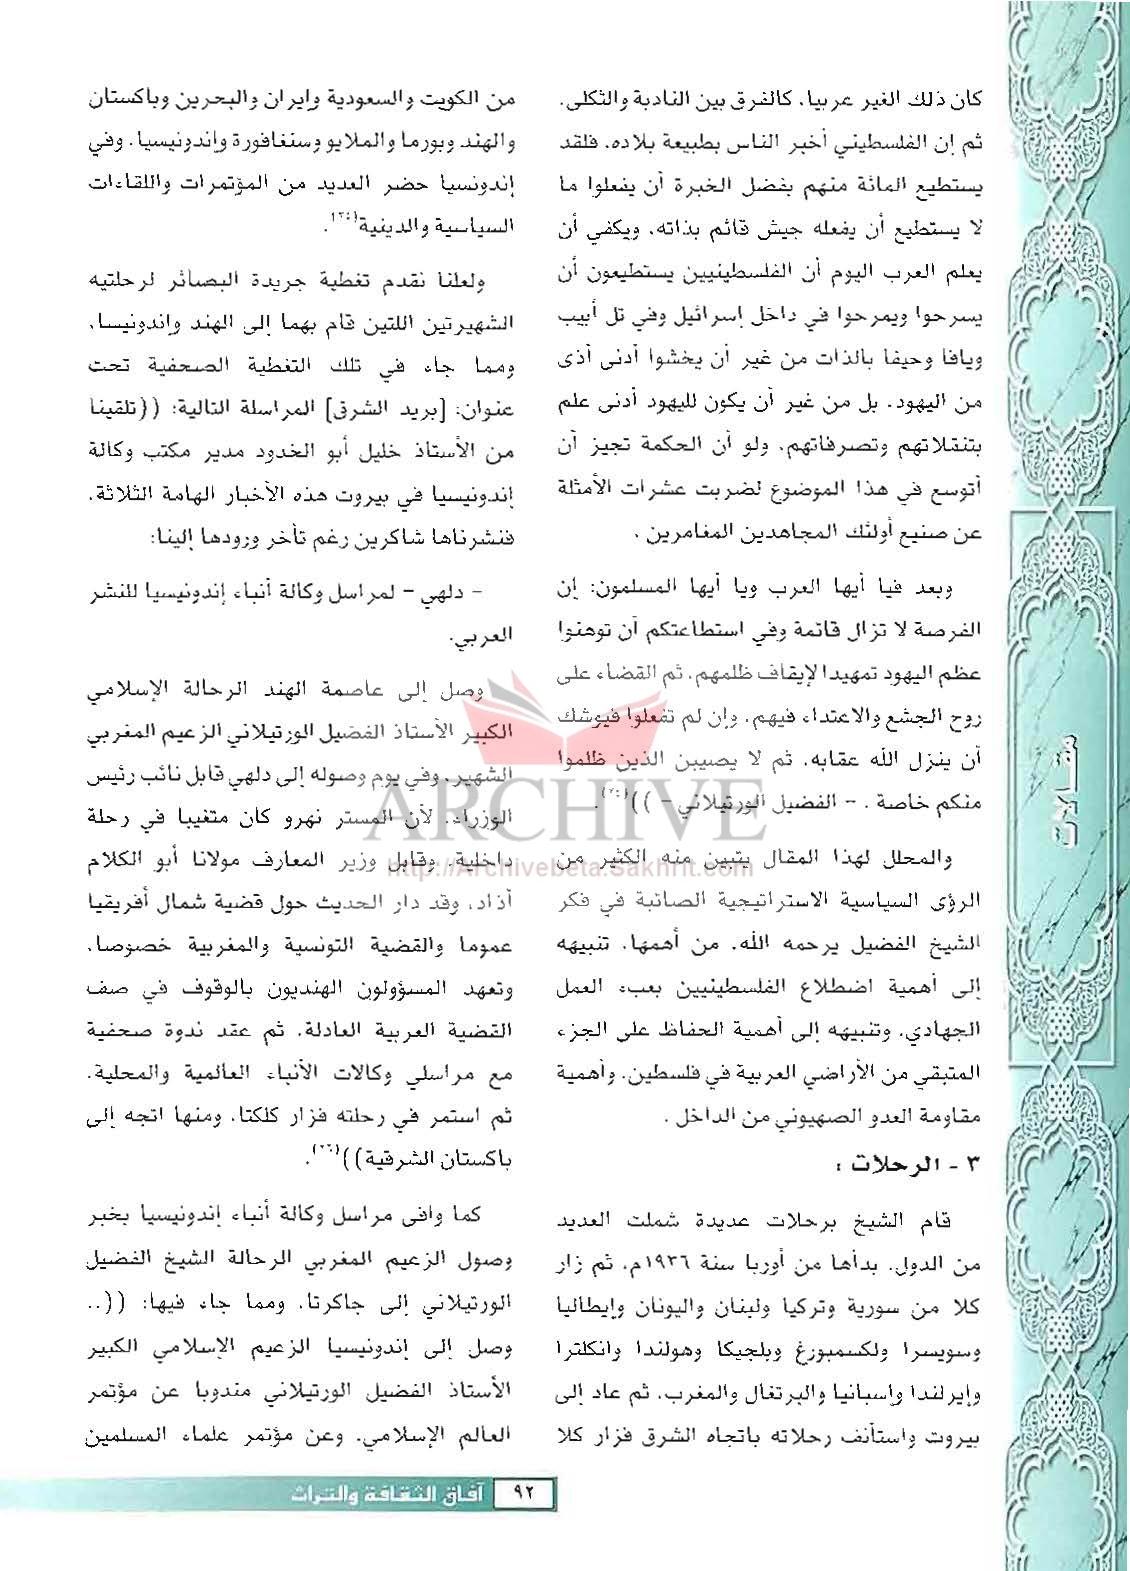 كان ذلك الغير عربيا، كالفرق بين النادبة والثكلى.
ثم إن الفلسطيني أخبر الناس بطبيعة بلاده، فلقد
يستطيع المائة منهم بفضل الخبرة أن يفعلوا ما
لا يستطيع أن يفعله جيش قائم بذاته، ويكفي أن
يعلم العرب اليوم أن الفلسطينيين يستطيعون أن
يسرحوا ويمرحوا في داخل إسرائيل وفي تل أبيب
ويافا وحيفا بالذات من غير أن يخشوا أدنى أذى
من اليهود، بل من غير أن يكون لليهود أدنى علم
بتنقلاتهم وتصرفاتهم، ولو أن الحكمة تجيز أن
أتوسع في هذا الموضوع لضربت عشرات الأمثلة
عن صنيع أولئك المجاهدين المغامرين .
وبعد فيا أيها العرب ويا أيها المسلمون: إن
الفرصة لا تزال قائمة وفي استطاعتكم أن توهنوا
عظم اليهود تمهيدا لإيقاف ظلمهم، ثم القضاء على
روح الجشع والاعتداء فيهم، وإن لم تفعلوا فيوشك
أن ينزل الله عقابه، ثم لا يصيبن الذين ظلموا
منكم خاصة . - الفضيل الورتيلاني - ))
والمحلل لهذا المقال يتبين منه الكثير من
الرؤى السياسية الاستراتيجية الصائبة في فكر
الشيخ الفضيل يرحمه الله، من أهمها، تنبيهه
إلى أهمية اضطلاع الفلسطينيين بعبء العمل
الجهادي، وتنبيهه إلى أهمية الحفاظ على الجزء
المتبقي من الأراضي العربية في فلسطين، وأهمية
مقاومة العدو الصهيوني من الداخل .
٣ - الرحلات :
قام الشيخ برحلات عديدة شملت العديد
من الدول، بدأها من أوربا سنة ١٩٣٦م، ثم زار
كلا من سورية وتركيا ولبنان واليونان وإيطاليا
وسويسرا ولكسمبورغ وبلجيكا وهولندا وانكلترا
وإيرلندا وإسبانيا والبرتغال والمغرب، ثم عاد إلى
بيروت واستأنف رحلاته باتجاه الشرق فزار كلا
من الكويت والسعودية وإيران والبحرين وباكستان
والهند وبورما والملايو وسنغافورة وإندونيسيا، وفي
إندونسيا حضر العديد من المؤتمرات واللقاءات
السياسية والدينية
ولعلنا نقدم تغطية جريدة البصائر لرحلتيه
الشهيرتين اللتين قام بهما إلى الهند وإندونيسا،
ومما جاء في تلك التغطية الصحفية تحت
عنوان: [بريد الشرق] المراسلة التالية: ((تلقينا
من الأستاذ خليل أبو الخدود مدير مكتب وكالة
إندونيسيا في بيروت هذه الأخبار الهامة الثلاثة،
فنشرناها شاكرين رغم تأخر ورودها إلينا:
- دلهي - لمراسل وكالة أنباء إندونيسيا للنشر
العربي.
وصل إلى عاصمة الهند الرحالة الإسلامي
الكبير الأستاذ الفضيل الورتيلاني الزعيم المغربي
الشهير، وفي يوم وصوله إلى دلهي قابل نائب رئيس
الوزراء، لأن المستر نهرو كان متغيبا في رحلة
داخلية، وقابل وزير المعارف مولانا أبو الكلام
آذاد، وقد دار الحديث حول قضية شمال أفريقيا
عموما والقضية التونسية والمغربية خصوصا،
وتعهد المسؤولون الهنديون بالوقوف في صف
القضية العربية العادلة، ثم عقد ندوة صحفية
مع مراسلي وكالات الأنباء العالمية والمحلية،
ثم استمر في رحلته فزار كلكتا، ومنها اتجه إلى
باكستان الشرقية))
كما وافى مراسل وكالة أنباء إندونيسيا بخبر
وصول الزعيم المغربي الرحالة الشيخ الفضيل
الورتيلاني إلى جاكرتا، ومما جاء فيها: ((..
وصل إلى إندونيسيا الزعيم الإسلامي الكبير
الأستاذ الفضيل الورتيلاني مندوبا عن مؤتمر
العالم الإسلامي، وعن مؤتمر علماء المسلمين
مقالات
ARCHIVE
http://Archivebeta.Sakhrit.com
٩٢ آفاق الثقافة والتراث